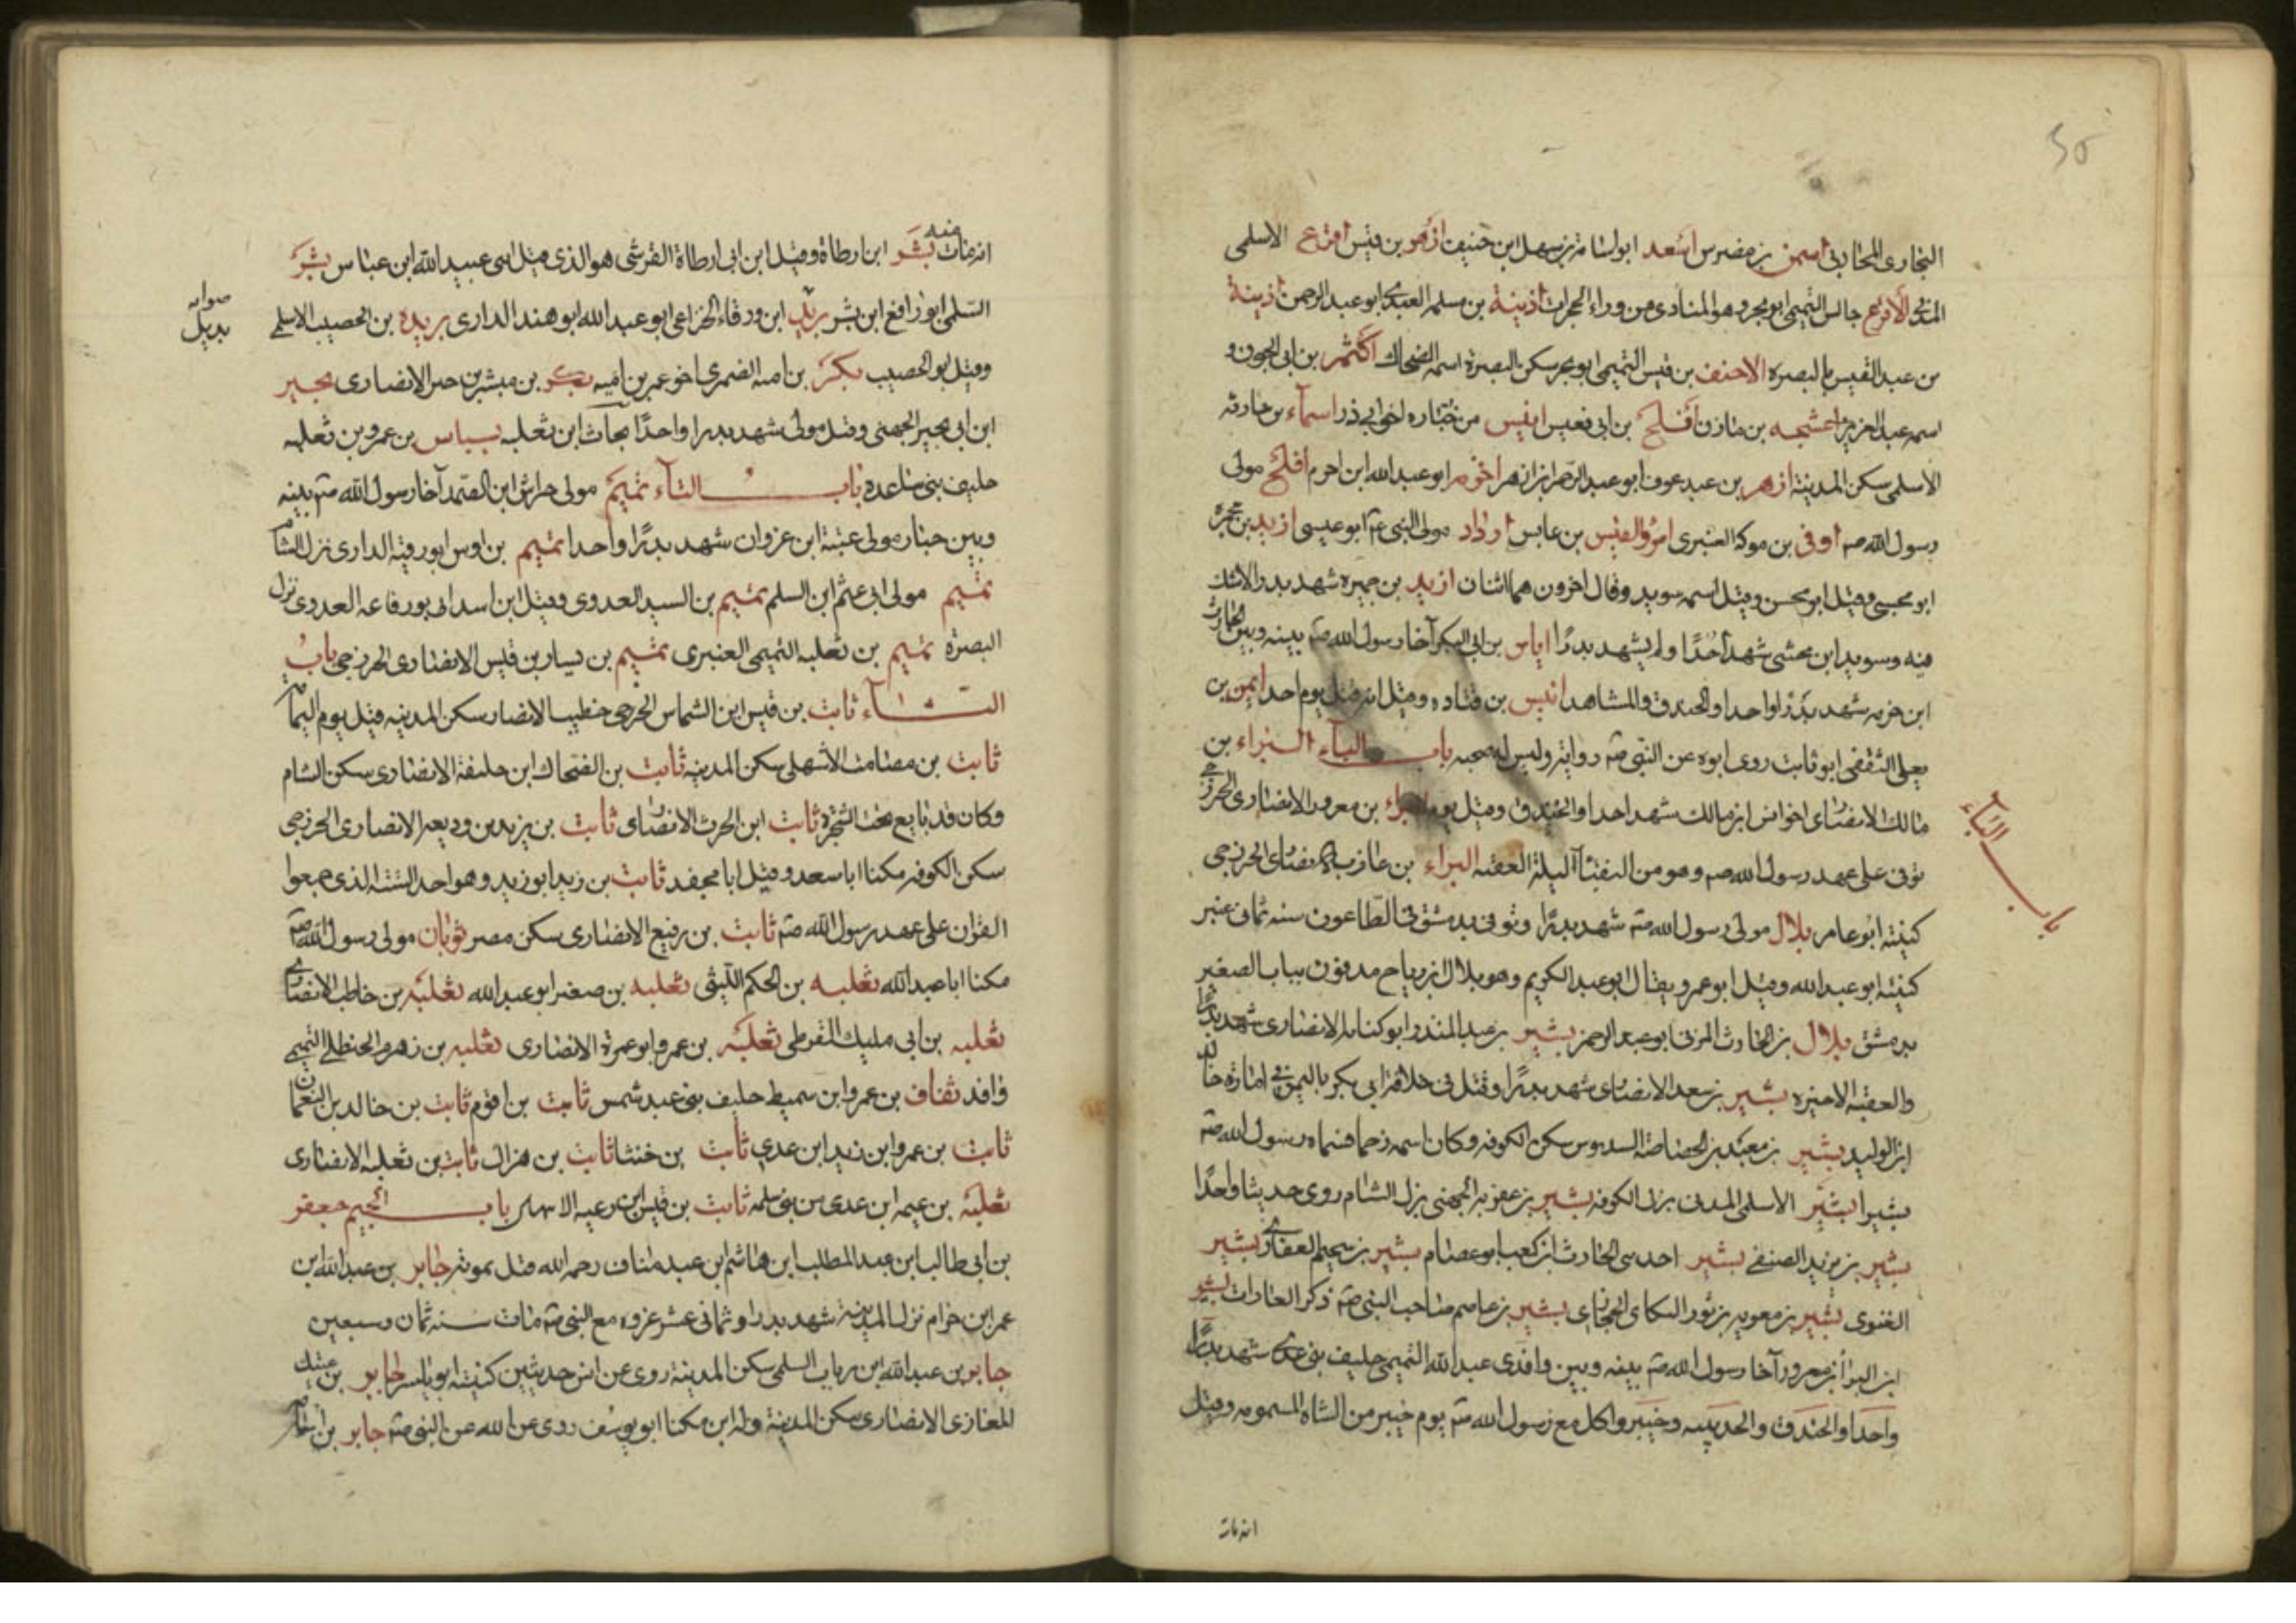 البخارى المحاربى اسمر بن مضرس اسعد ابو امامة بن سهل ابن حنيف ازهر بن قيس اقرع الاسلمى
المدنى الاقرع حابس التميمى ابو بحر وهو المنادى من وراء الحجرات اذينة بن مسلمة العبدى ابو عبد الرحمن اذينة
من عبد القيس بالبصرة الاحنف بن قيس التميمى ابو بحر سكن البصرة اسمه الضحاك اكثم بن ابى الجون و
اسمه عبد العزيز بن مازن افلح بن ابى قعيس انيس من جنادة اخى ابى ذر اسماء بن حارثه
الاسلمى سكن المدينة ازهر بن عبد عوف ابو عبد الرحمن بن ازهر اخرم ابو عبد الله ابن اخرم افلح مولى
رسول الله صم اوفى بن موله العنبرى امرؤ القيس بن عابس مولى النبى عم ابو عيسى
ابو مخشى وقيل ابو محسن وقيل اسمه سويد وقال اخرون هما اثنان ازيد بن حميره شهد بدر
فيه وسويد ابن مخشى شهد احدا ولم يشهد بدرا اياس بن ابى البكر آخا رسول الله صم بينه وبين الحارث
ابن خزمه شهد بدرا واحدا والخندق والمشاهد انيس بن قتاده وقيل انه قتل يوم احد ايمن بن
يعلى الثقفى ابو ثابت روى ابوه عن النبى صم رواية وليس له صحبه باب الباء البراء بن
مالك الانصارى اخو انس ابن مالك شهد احدا والخندق وقتل يوم البراء بن معرور الانصارى الخزرجى
توفى على عهد رسول الله صم وهو من النقباء ليلة العقبه البراء بن عازب الانصارى الخزرجى
كنيته ابو عامر بلال مولى رسول الله صم شهد بدرا وتوفى بدمشق فى الطاعون سنه ثمانى عشر
كنيته ابو عبد الله وقيل ابو عمر ويقال ابو عبد الكريم وهو بلال ابن رباح مدفون بباب الصغير
بدمشق بلال بن الحارث المزنى ابو عبد الرحمن بشير بن عبد المنذر ابو لبابه الانصارى شهد بدرا
والعقبه الاخيره بشير بن سعد الانصارى شهد بدرا وقتل فى خلافة ابى بكر باليمن فى امارة خالد
ابن الوليد بشير بن معبد بن الخصاصة السدوس سكن الكوفه وكان اسمه زحما فسماه رسول الله صم
بشيرا بشير الاسلمى المدنى نزل الكوفه بشير بن عقربه الجهنى نزل الشام روى حديثا واحدا
بشير بن يزيد الضبعى بشير احد بنى الحارث ابن كعب ابو عصام بشير بن سحيم الغفارى بشير
الغنوى بشير بن معويه بن ثور البكاى الحجازى بشير بن عاصم صاحب النبى صم ذكر العادات بشر
ابن البراء بن معرور آخا رسول الله صم بينه وبين واقد بن عبد الله التميمى حليف بنى عدى شهد بدرا
واحدا والخندق والحديبيه وخيبر واكل مع رسول الله صم يوم خيبر من الشاة المسمومه وقيل
انه مات
باب الباء
انه مات منه بشر ابن ارطاة وقيل ابن ابى ارطاة القرشى هو الذى قتل ابنى عبيد الله ابن عباس بشر
السلمى ابو رافع ابن بشر بريل ابن ورقاء الخزاعى ابو عبد الله ابو هند الدارى بريده بن الحصيب الاسلمى
صوابه بديل
وقيل ابو الحصيب بكر بن اميه الضمرى اخو عمر بن اميه بكر بن مبشر بن حبر الانصارى بجير
ابن ابى بجير الجهنى وقيل مولى شهد بدرا واحدا بحاث ابن ثعلبه بسباس بن عمرو بن ثعلبه
حليف بنى ساعده باب التاء تميم مولى خراش ابن الصمد آخا رسول الله صم بينه
وبين حباب مولى عتبة ابن غزوان شهد بدرا واحدا تميم بن اوس ابو رقيه الدارى نزل الشام
تميم مولى ابى غنم ابن السلم تميم بن السيد العدوى وقيل ابن اسد ابو رفاعه العدوى نزل
البصره تميم بن ثعلبه التميمى العنبرى تميم بن يسار بن قيس الانصارى الخزرجى باب
الثاء ثابت بن قيس ابن الشماس الخزرجى خطيب الانصار سكن المدينه قتل يوم اليمامه
ثابت بن صامت الاشهلى سكن المدينه ثابت بن الضحاك ابن خليفة الانصارى سكن الشام
وكان قد بايع تحت الشجرة ثابت ابن الحرث الانصارى ثابت بن يزيد بن وديعه الانصارى الخزرجى
سكن الكوفه مكنا ابا سعد وقيل ابا ثابت بن زيد ابو زيد وهو احد الستة الذى جمعوا
القران على عهد رسول الله صم ثابت بن رفيع الانصارى سكن مصر ثوبان مولى رسول الله صم
مكنا ابا عبد الله ثعلبه بن الحكم الليثى ثعلبه بن صغير ابو عبد الله ثعلبه بن حاطب الانصارى
ثعلبه بن ابى مليك القرظى ثعلبه بن عمرو ابو عمرة الانصارى ثعلبه بن زهدم الحنظلى التميمى
وافد ثقاف بن عمرو ابن سميط حليف بنى عبد شمس ثابت بن اقرم ثابت بن خالد بن النعمان
ثابت بن عمرو ابن زيد ابن عدى ثابت بن خنسا ثابت بن هزال ثابت بن ثعلبه الانصارى
ثعلبه بن عنمه ابن عدى من بنى سلمه ثابت بن قيس ابن باب الجيم جعفر
بن ابى طالب ابن عبد المطلب ابن هاشم ابن عبد مناف رحمه الله قتل بموته جابر بن عبد الله ابن
عمر ابن حزام نزل المدينة شهد بدرا وثمانى عشر غزوه مع النبى صم مات سنه ثمان وسبعين
جابر بن عبد الله ابن رباب السلمى سكن المدينة روى عن انس حديثين كنيته ابو ياسر جابر بن عتيك
المعازى الانصارى سكن المدينة وله ابن مكنا ابو يوسف روى عن الله عن النبى صم جابر بن اسامه